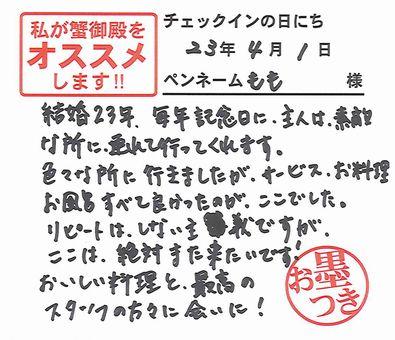 私が蟹御殿を
オススメ
します!!
チェックインの日にち
23年 4月 1日
ペンネーム もも 様
結婚23年、毎年記念日に、主人は、素敵
な所に、連れて行ってくれます。
色々な所に行きましたが、サービス、お料理
お風呂すべて良かったのが、ここでした。
リピートは、しない主義ですが、
ここは、絶対また来たいです!
おいしい料理と、最高の
スタッフの方々に会いに!
お墨つき